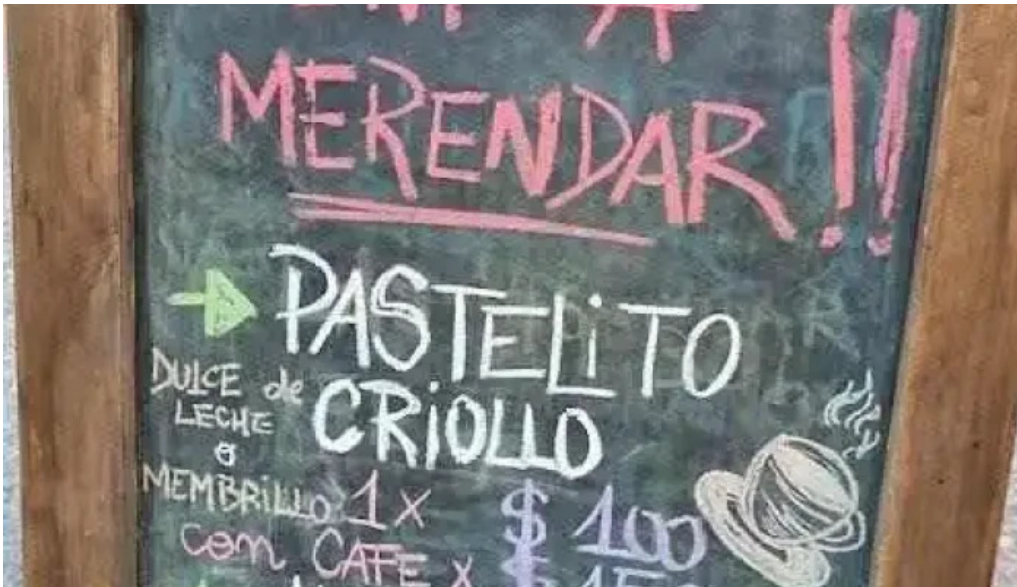 MERENDAR!!
PASTELiTO
CRiOLLO
DULCE de
LECHE
o
MEMBRILLO 1 X $ 100
con CAFE x $ 150